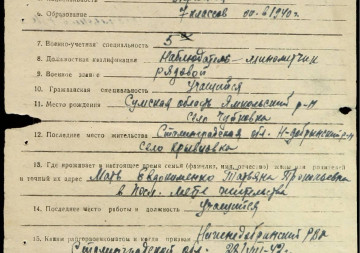 6. Образование 7 классов ок. в 1940 г.
7. Военно-учетная специальность 5
8. Должностная квалификация Наблюдатель-минометчик
9. Военное звание рядовой
10. Гражданская специальность Учащийся
11. Место рождения Сумская область Ямпольский р-н
село Чуйковка
12. Последнее место жительства Сталинградская обл. Н-добринский р-н
село
13. Где проживает в настоящее время семья (фамилия, имя, отчество) жены или родителей
и точный их адрес Мать Евдокименко Татьяна
в посл. месте жительства
14. Последнее место работы и должность Учащийся
15. Каким райгорвоенкоматом и когда призван Нижнедобринский РВК
Сталинградской обл. VIII-42 г.